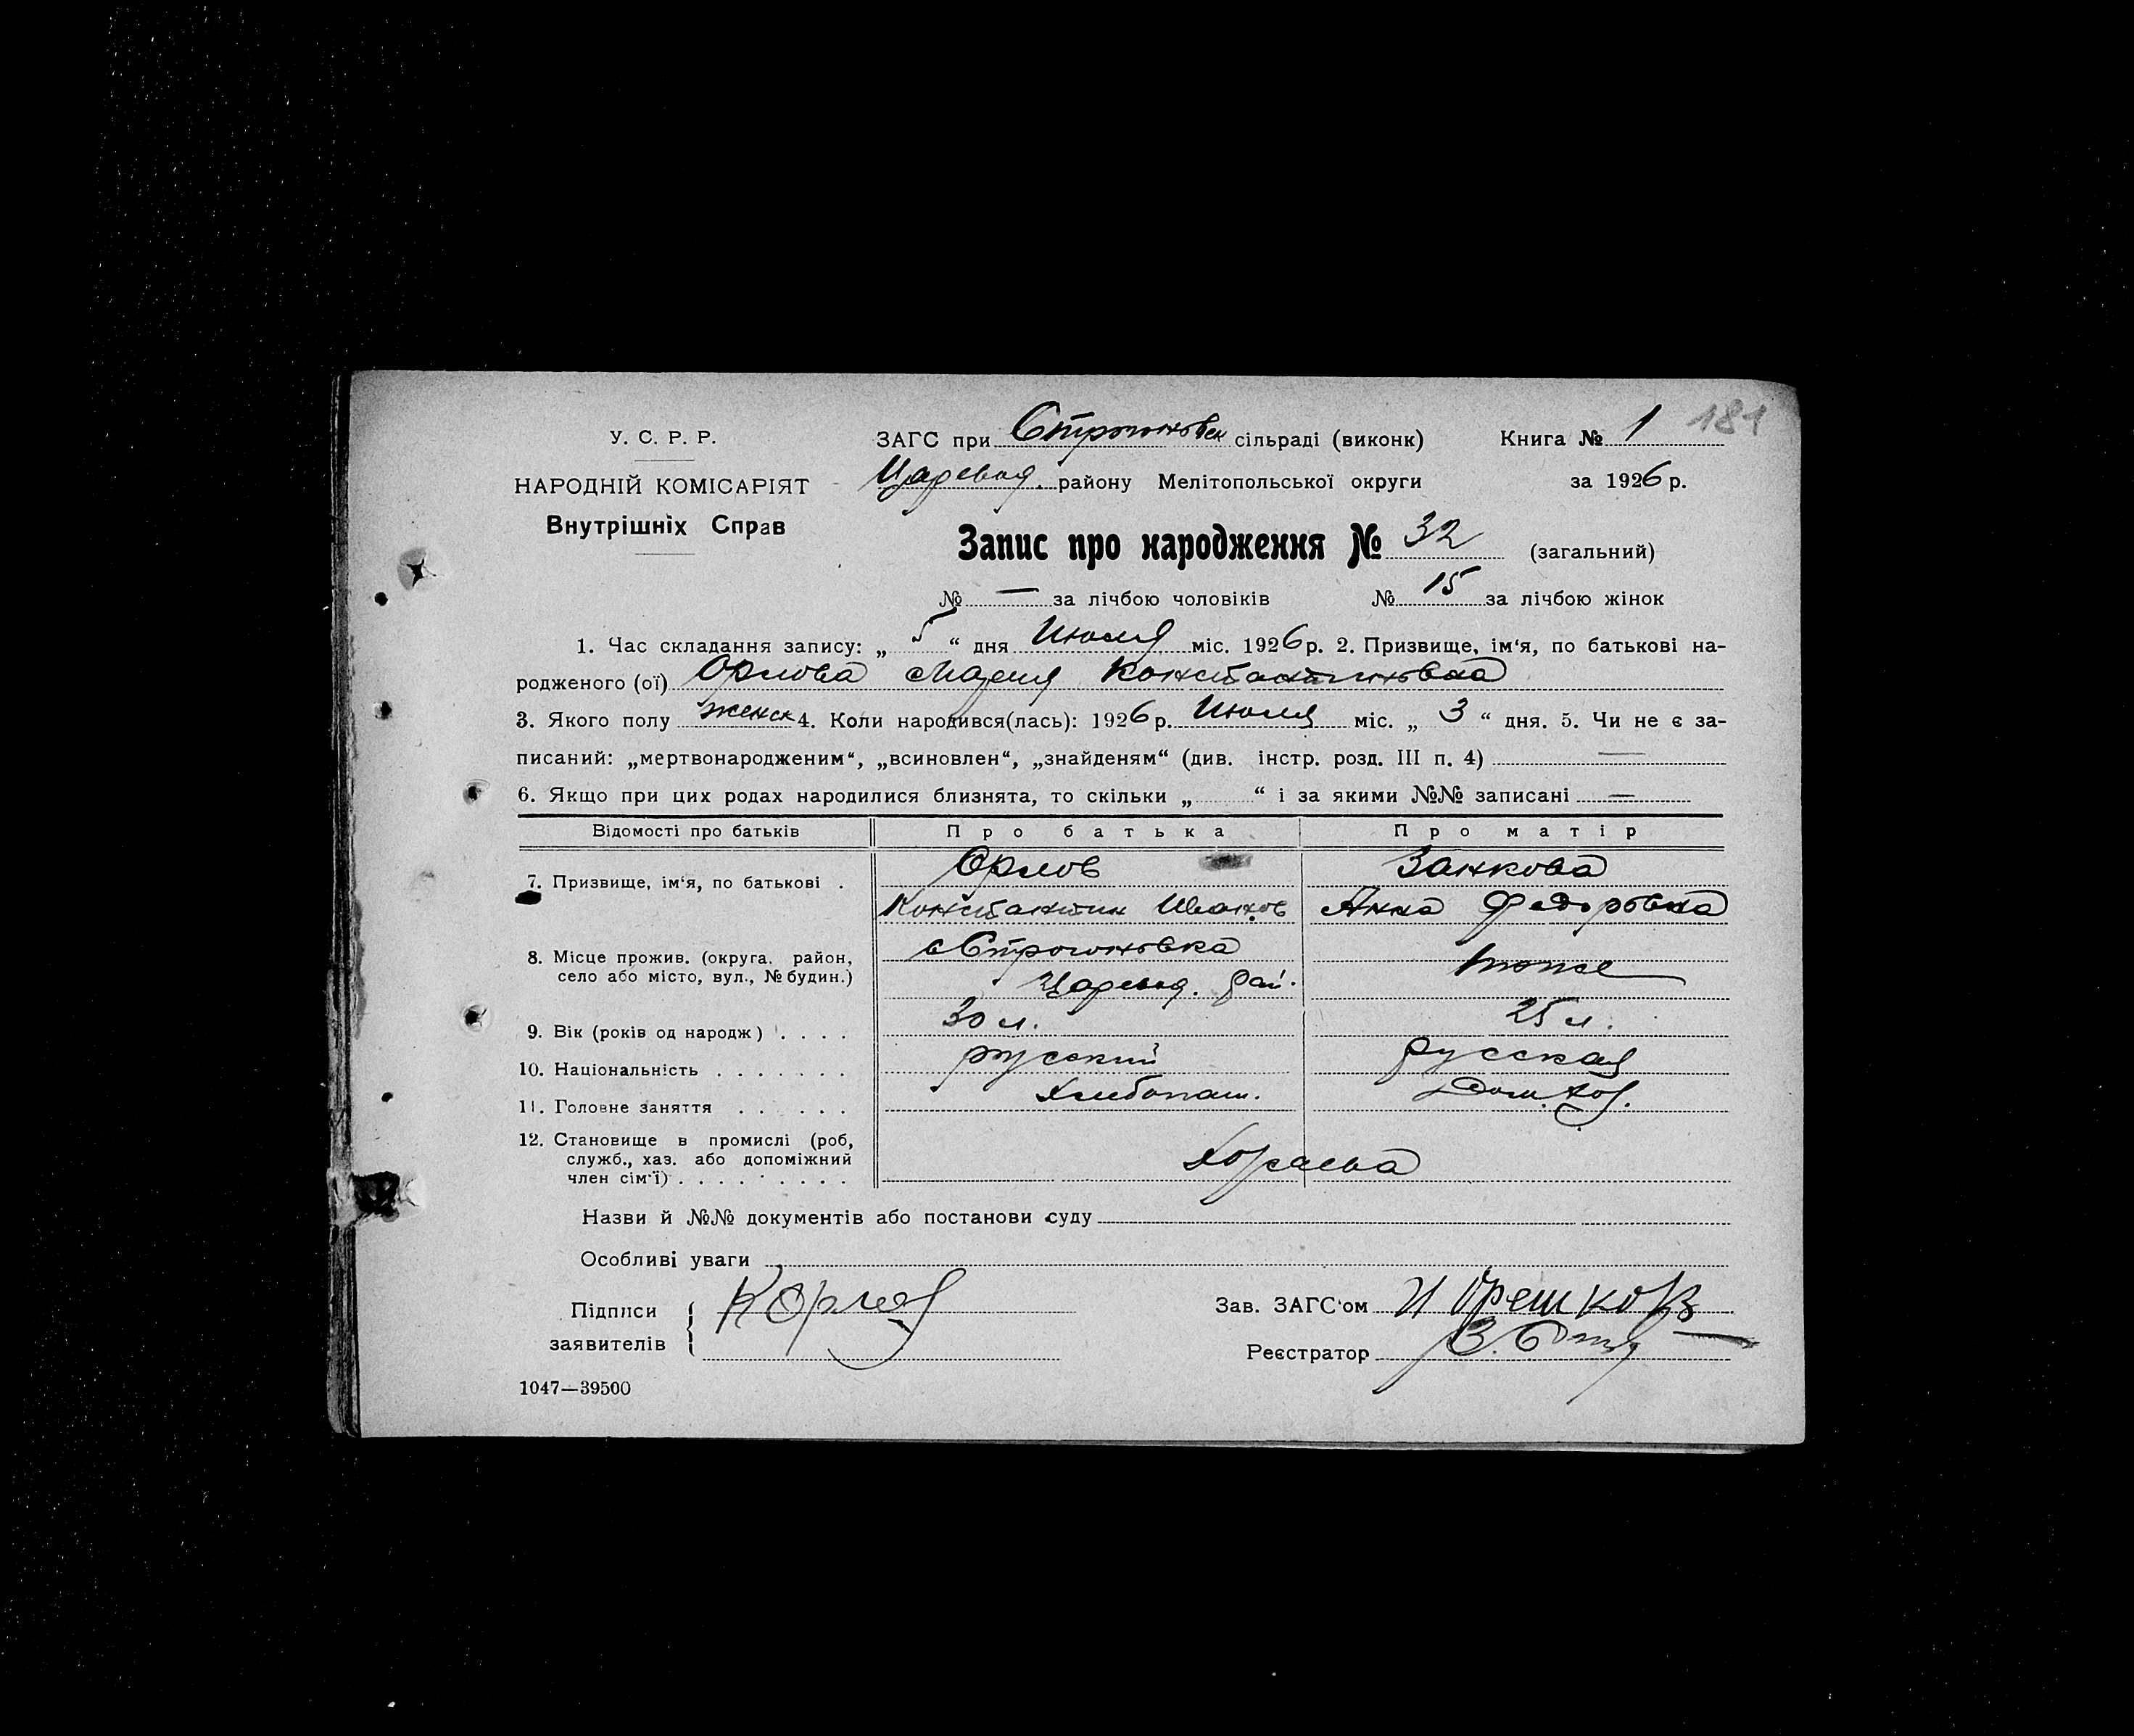 181
У. С. Р. Р.
НАРОДНІЙ КОМІСАРІЯТ
Внутрішніх Справ
ЗАГС при Строгоновск сільраді (виконк) Книга № 1
Царевод. району Мелітопольської округи за 1926 р.
Запис про народження № 32 (загальний)
№ — за лічбою чоловіків № 15 за лічбою жінок
1. Час складання запису: „ 5 “ дня Июля міс. 1926 р. 2. Призвище, ім‘я, по батькові на-
родженого (ої) Орлова Мария Константиновна
3. Якого полу женск 4. Коли народився(лась): 1926 р. Июля міс. „ 3 “ дня. 5. Чи не є за-
писаний: „мертвонародженим“, „всиновлен“, „знайденям“ (див. інстр. розд. III п. 4) —
6. Якщо при цих родах народилися близнята, то скільки „ “ і за якими №№ записані —
Відомості про батьків Про батька Про матір
7. Призвище, ім‘я, по батькові . Орлов Занкова
Константин Иванов Анна Федоровна
8. Місце прожив. (округа. район, с Строгоновка тоже
село або місто, вул., № будин.) Царевод. рай.
9. Вік (років од народж) . . . . 30 л. 25 л.
10. Національність . . . . . . . русский русская
11. Головне заняття . . . . . . Хлебопаш. Дом. хоз.
12. Становище в промислі (роб,
служб., хаз. або допоміжний
член сім‘ї) . . . . . . . . .
Назви й №№ документів або постанови суду
Особливі уваги
Підписи К Орлов Зав. ЗАГС‘ом И Орешков
заявителів Реєстратор
1047—39500